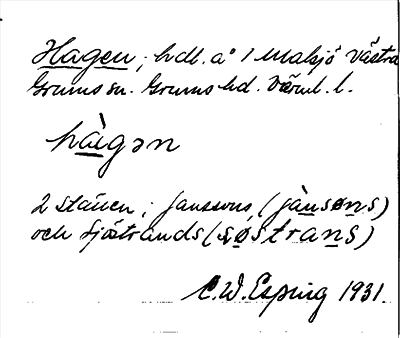 Hagen, hdl. a° 1 Malsjö Västra
Grums sn. Grums hd. Värml. l.
hàgən
2 stäuen; Janssons (jànsons)
och Sjöstrands (søstrans)
C.W. Esping 1931.